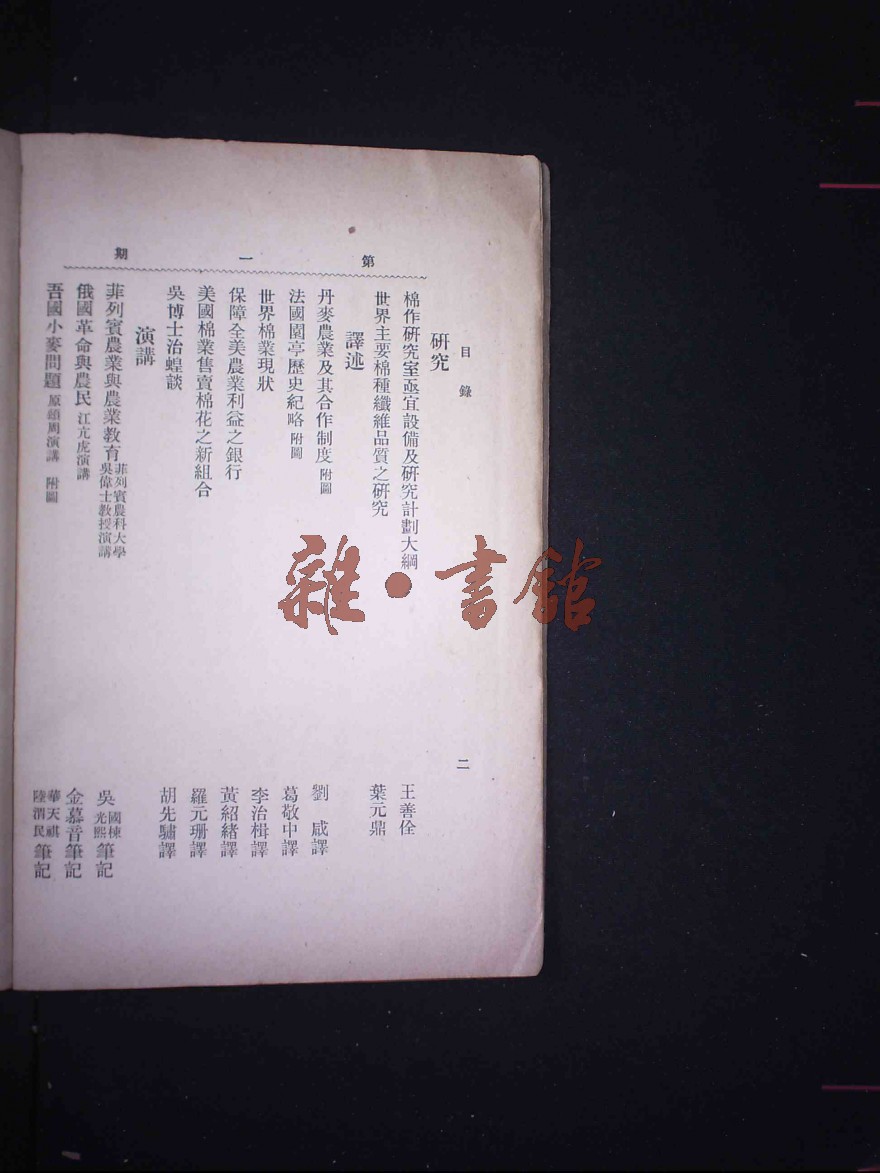 目錄
二
第一期
研究
棉作研究室亟宜設備及研究計劃大綱 王善佺
世界主要棉種纖維品質之研究 葉元鼎
譯述
丹麥農業及其合作制度 附圖 劉咸譯
法國園亭歷史紀略 附圖 葛敬中譯
世界棉業現狀 李治楫譯
保障全美農業利益之銀行 黃紹緒譯
美國棉業售賣棉花之新組合 羅元珊譯
吳博士治蝗談 胡先驌譯
演講
菲列賓農業與農業教育 菲列賓農科大學吳偉士教授演講 吳國棟光熙筆記
俄國革命與農民 江亢虎演講 金慕音筆記
吾國小麥問題 原頌周演講 附圖 華天祺陸渭民筆記
雜·書館